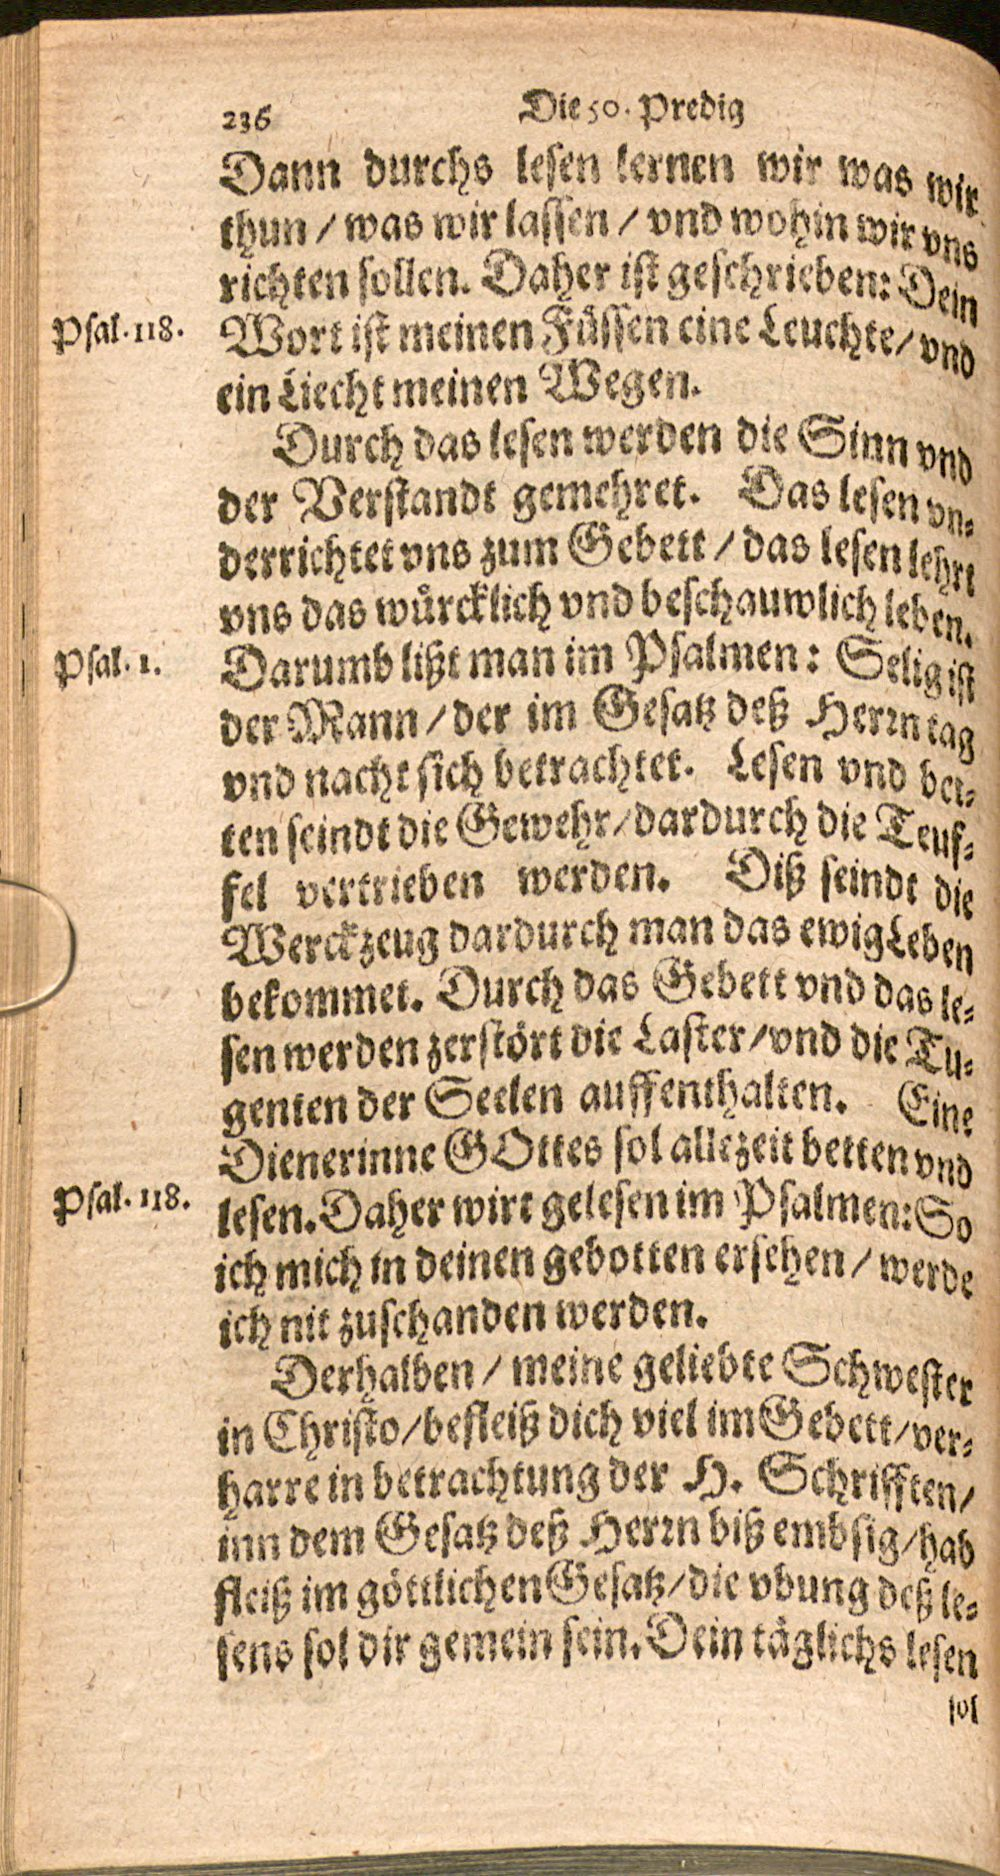 236 Die 50. Predig
Dann durchs lesen lernen wir was wir
thun / was wir lassen / vnd wohin wir vns
richten sollen. Daher ist geschrieben: Dein
Psal. 118. Wort ist meinen Füssen eine Leuchte / vnd
ein Liecht meinen Wegen.
Durch das lesen werden die Sinn vnd
der Verstandt gemehret. Das lesen vn⸗
derrichtet vns zum Gebett / das lesen lehrt
vns das würcklich vnd beschauwlich leben.
Psal. 1. Darumb lißt man im Psalmen: Selig ist
der Mann / der im Gesatz deß Herrn tag
vnd nacht sich betrachtet. Lesen vnd bet⸗
ten seindt die Gewehr / dardurch die Teuf⸗
fel vertrieben werden. Diß seindt die
Werckzeug dardurch man das ewig Leben
bekommet. Durch das Gebett vnd das le⸗
sen werden zerstört die Laster / vnd die Tu⸗
genten der Seelen auffenthalten. Eine
Dienerinne GOttes sol allezeit betten vnd
Psal. 118. lesen. Daher wirt gelesen im Psalmen: So
ich mich in deinen gebotten ersehen / werde
ich nit zuschanden werden.
Derhalben / meine geliebte Schwester
in Christo / befleiß dich viel im Gebett / ver⸗
harre in betrachtung der H. Schrifften /
inn dem Gesatz deß Herrn biß embsig / hab
fleiß im göttlichen Gesatz / die vbung deß le⸗
sens sol dir gemein sein. Dein täglichs lesen
sol